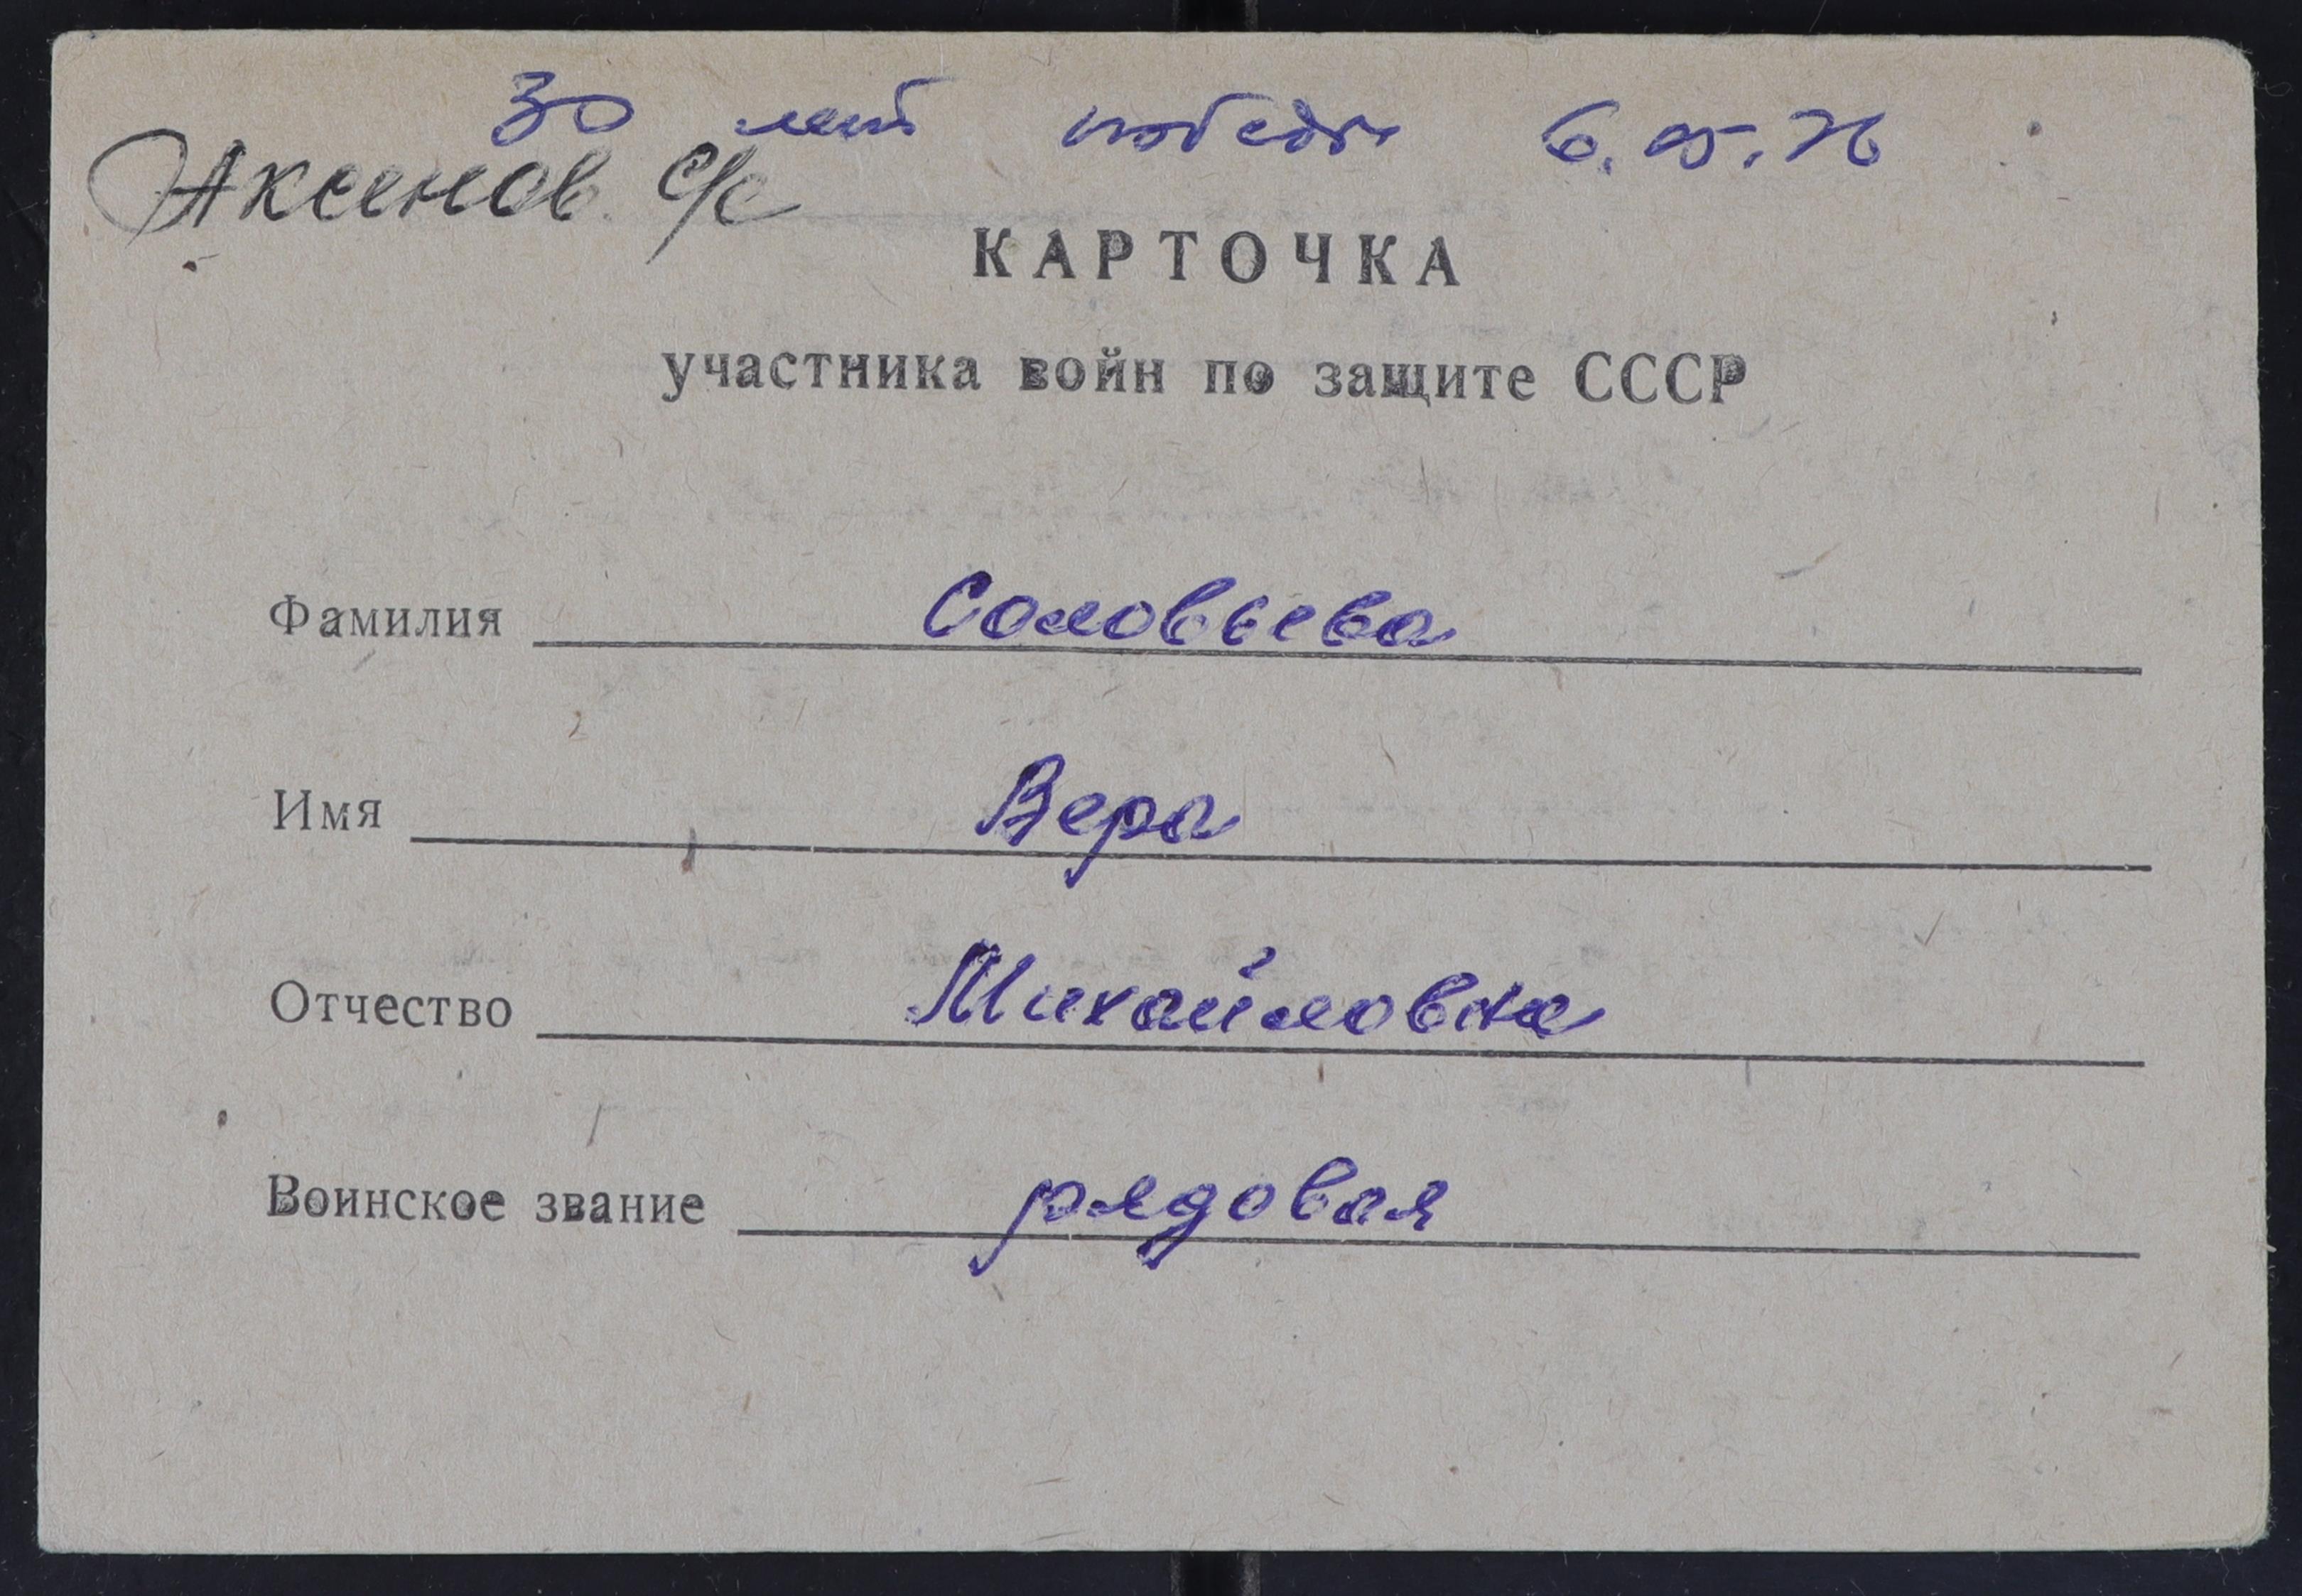 30 лет победы 6.05.76
Аксенов. с/с
КАРТОЧКА
участника войн по защите СССР
Фамилия Соловьева
Имя Вера
Отчество Михайловна
Воинское звание рядовая